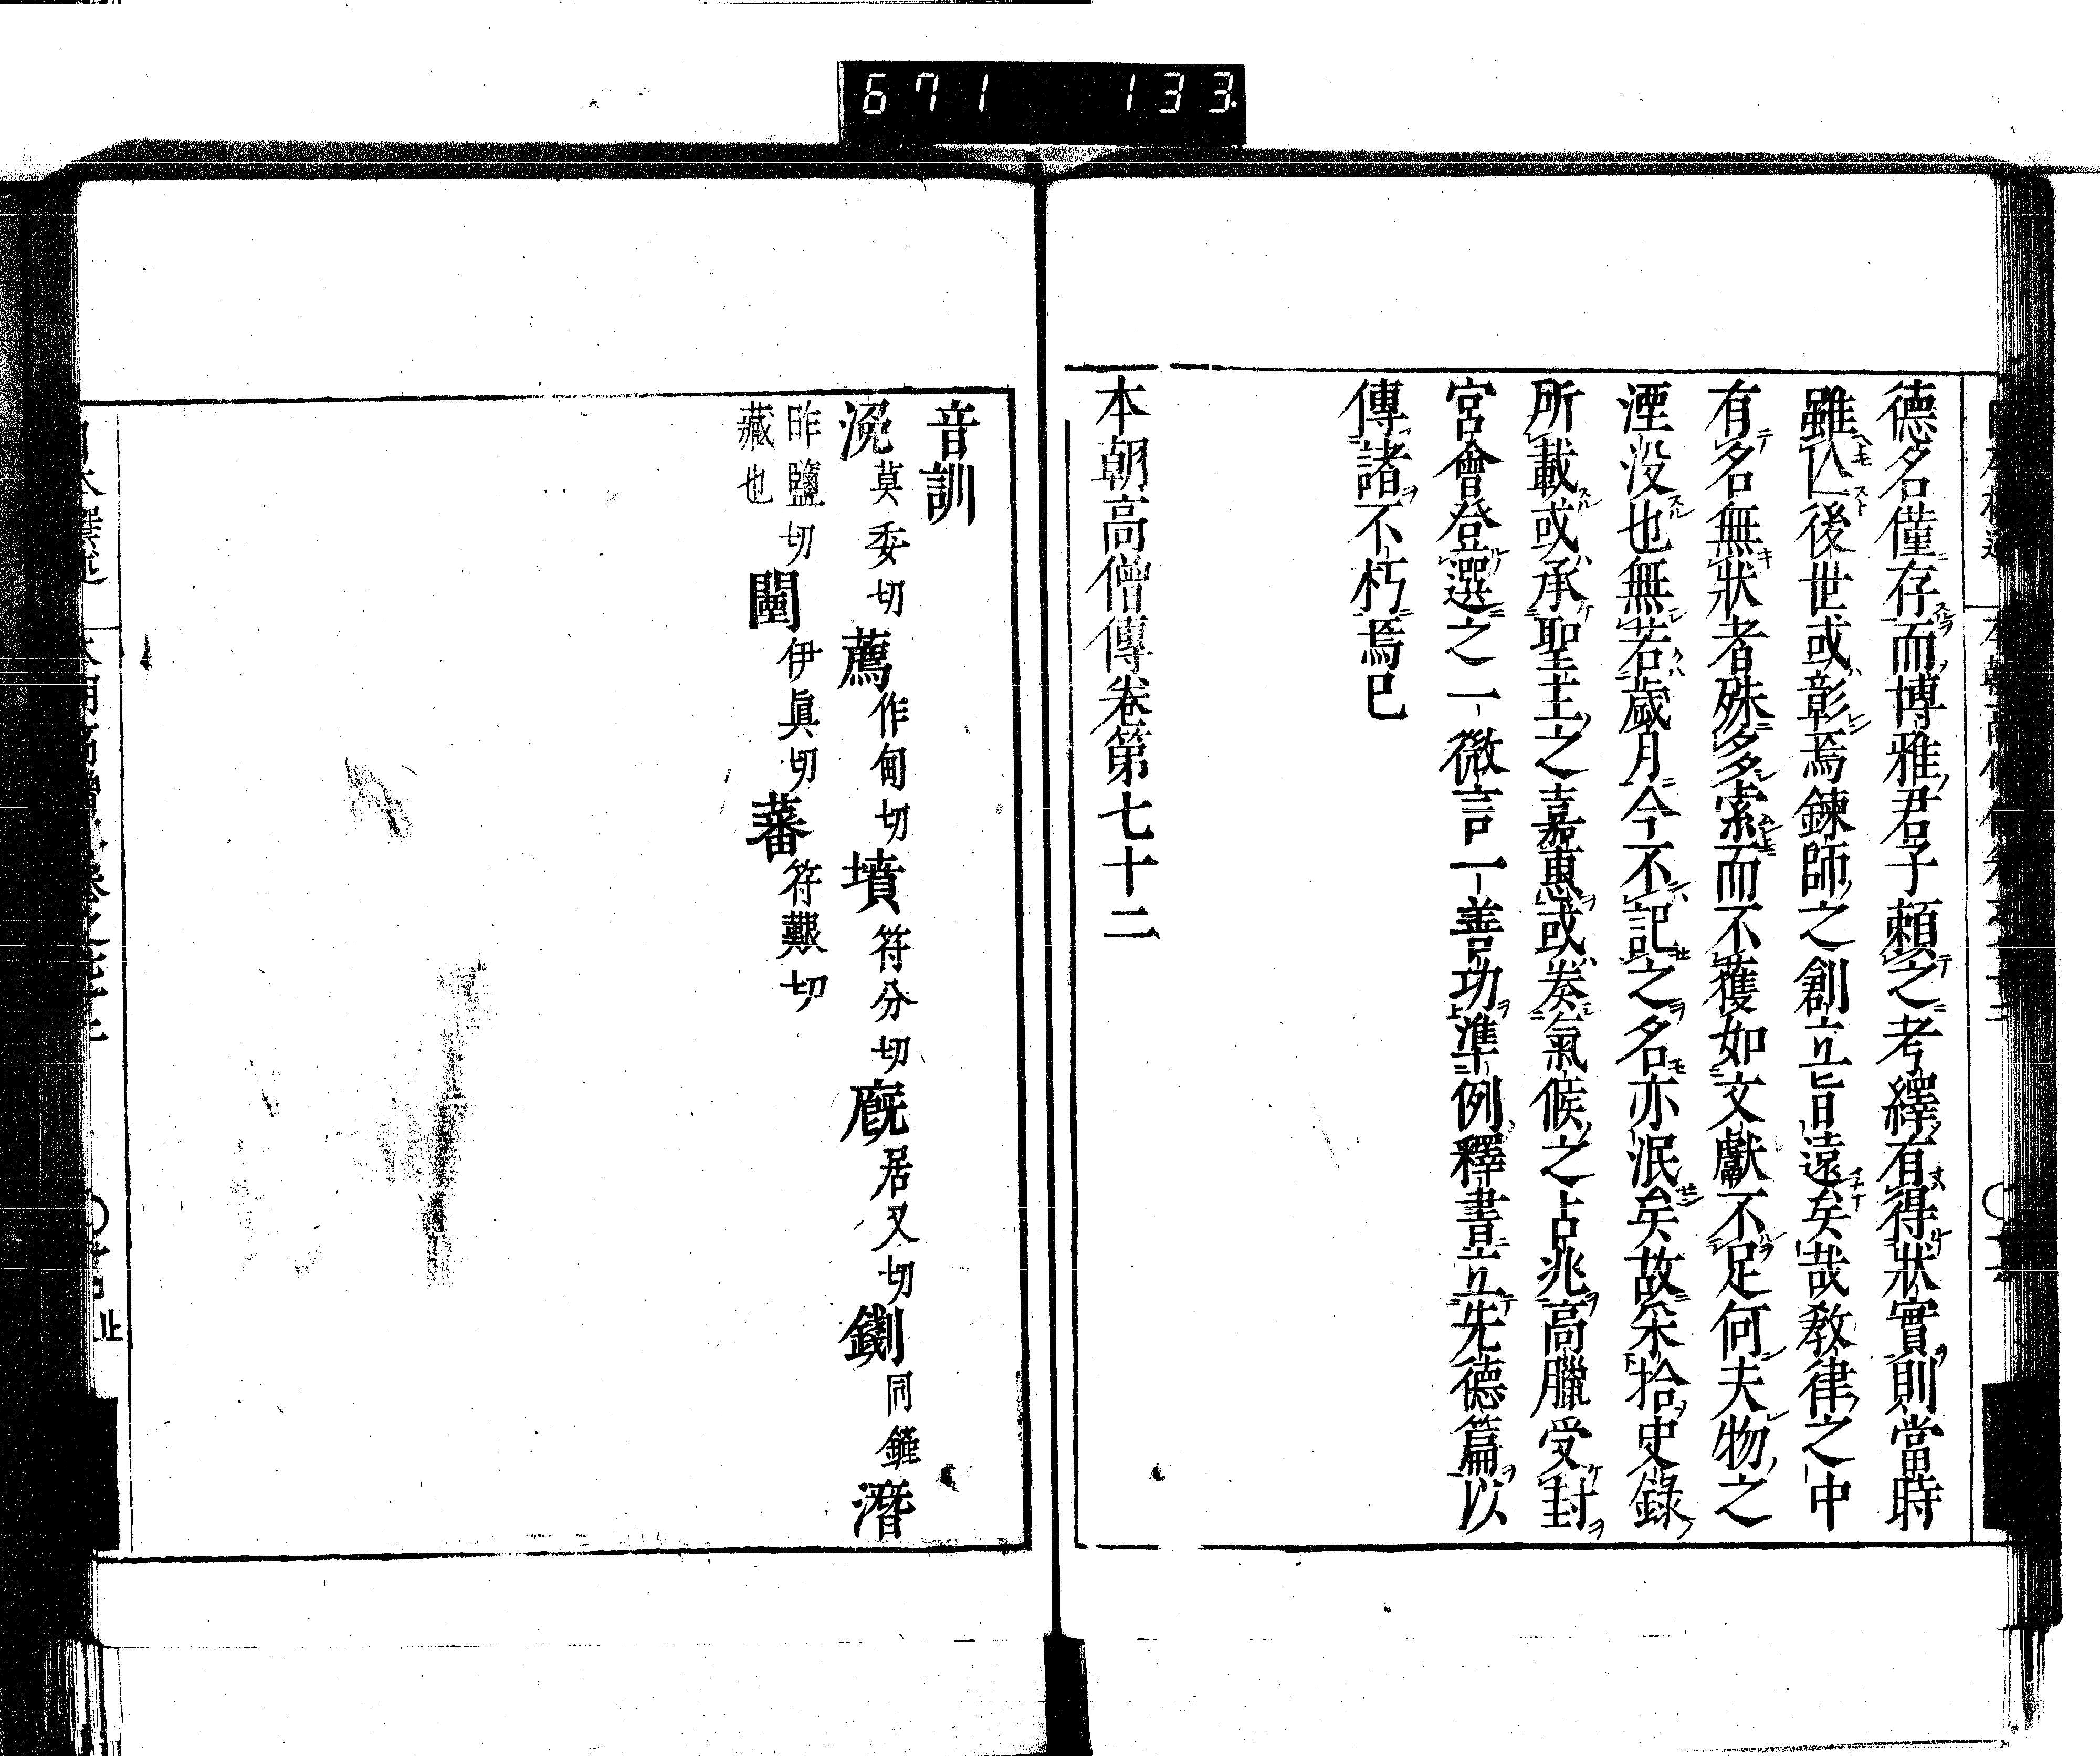 671 133
德名僅存而博雅君子賴之考繹有得狀實則當時
雖亾後世或彰焉鍊師之創立旨遠矣哉教律之中
有名無狀者殊多索而不獲如文獻不足何夫物之
湮没也無若歲月今不記之名亦泯矣故采拾史錄
所載或承聖主之嘉惠或奏氣候之占兆高臘受封
宮會登選之一微言一善功準例釋書立先德篇以
傳諸不朽焉已
本朝高僧傳卷第七十二
音訓
浼 莫委切 薦 作甸切 墳 符分切 廐 居又切 鐗 同鏟 潛
昨鹽切藏也 闉 伊眞切 蕃 符艱切